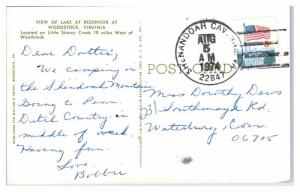 VIEW OF LAKE AT RESERVOIR AT
WOODSTOCK, VIRGINIA
Located on Little Stoney Creek 10 miles West of
Woodstock.
Dear Dottie,
We camping on
the Skendoah Mountain
Going to Penn
Dutch Country in
middle of week
Having fun.
Love
Bobbie
POST CARD
SHENANDOAH CAV
AUG
5
AM
1974
22847
Miss Dorothy Dews
31 Southmayd Rd.
Waterbury, Conn.
06705